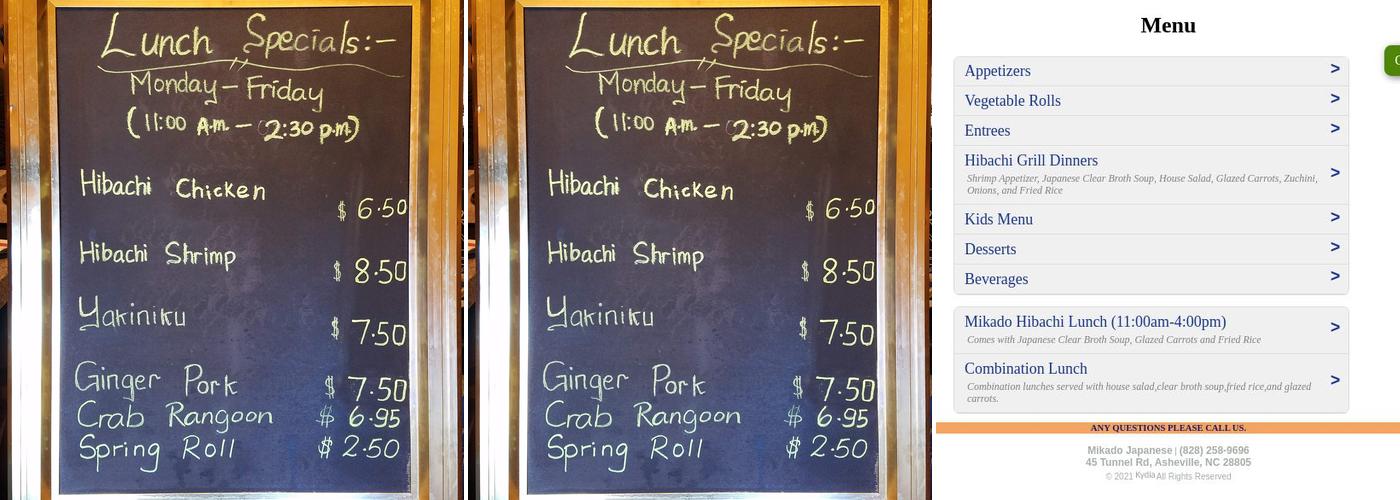 Lunch Specials:-
Monday - Friday
(11:00 A.m. - 2:30 p.m.)
Hibachi Chicken
$ 6.50
Hibachi Shrimp
$ 8.50
Yakiniku
$ 7.50
Ginger Pork $ 7.50
Crab Rangoon $ 6.95
Spring Roll $ 2.50
Lunch Specials:-
Monday - Friday
(11:00 A.m. - 2:30 p.m.)
Hibachi Chicken
$ 6.50
Hibachi Shrimp
$ 8.50
Yakiniku
$ 7.50
Ginger Pork $ 7.50
Crab Rangoon $ 6.95
Spring Roll $ 2.50
Menu
Appetizers >
Vegetable Rolls >
Entrees >
Hibachi Grill Dinners >
Shrimp Appetizer, Japanese Clear Broth Soup, House Salad, Glazed Carrots, Zuchini,
Onions, and Fried Rice
Kids Menu >
Desserts >
Beverages >
Mikado Hibachi Lunch (11:00am-4:00pm) >
Comes with Japanese Clear Broth Soup, Glazed Carrots and Fried Rice
Combination Lunch >
Combination lunches served with house salad,clear broth soup,fried rice,and glazed
carrots.
ANY QUESTIONS PLEASE CALL US.
Mikado Japanese | (828) 258-9696
45 Tunnel Rd, Asheville, NC 28805
© 2021 Kydia All Rights Reserved